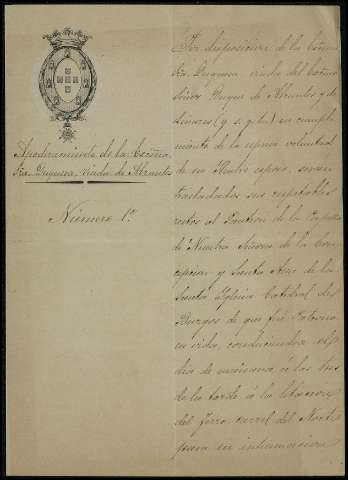 Apoderamiento de la Excma.
Sra. Duquesa, viuda de Abrantes
Número 1º
Por disposicion de la Excma.
Sra. Duquesa viuda del Excmo.
Señor Duque de Abrantes y de
Linares (q. s. g. h.) en cumpli-
miento de la expresa voluntad
de su Ilustre esposo, seran
trasladados sus respetables
restos al Panteon de la Capilla
de Nuestra Señora de la Con-
cepcion y Santa Ana de la
Santa Yglesia Catedral de
Burgos de que fué Patrono
en vida, conduciendose el
dia de mañana á las tres
de la tarde á la Estacion
del ferro-carril del Norte
para su inhumacion